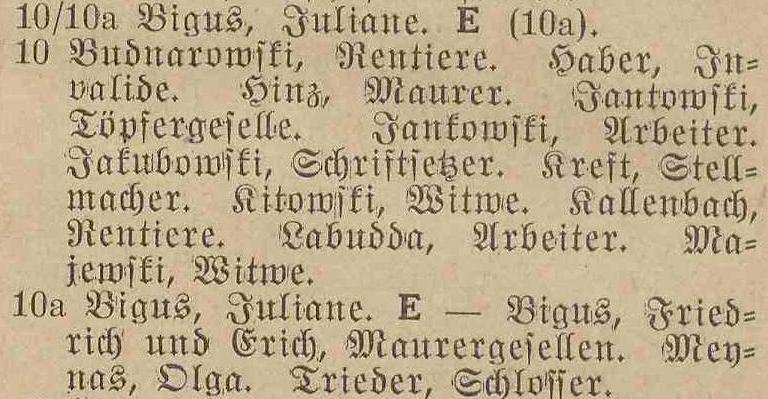 10/10a Bigus, Juliane. E (10a).
10 Budnarowski, Rentiere. Haber, In=
valide. Hinz, Maurer. Jantowski,
Töpfergeselle. Jankowski, Arbeiter.
Jakubowski, Schriftsetzer. Kreft, Stell=
macher. Kitowski, Witwe. Kallenbach,
Rentiere. Labudda, Arbeiter. Ma=
jewski, Witwe.
10a Bigus, Juliane. E — Bigus, Fried=
rich und Erich, Maurergesellen. Mey=
nas, Olga. Trieder, Schlosser.